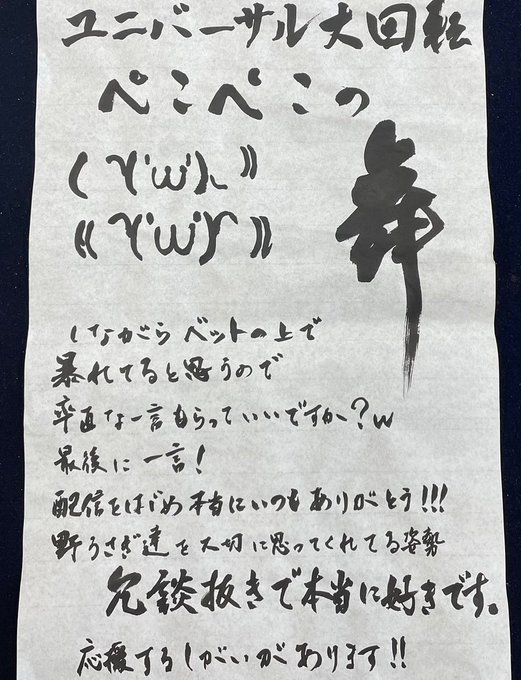 ユニバーサル大回転
ぺこぺこの
舞
( Y('ω')ヽ 》
《 Y('ω')Y 》
しながらベットの上で
暴れてると思うので
率直な一言もらっていいですか?w
最後に一言!
配信をはじめ本当にいつもありがとう!!!
野うさぎ達を大切に思ってくれてる姿勢
冗談抜きで本当に好きです。
応援するしがいがあります!!